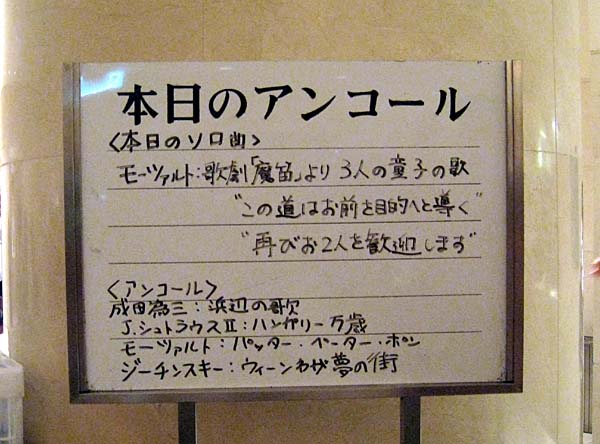 本日のアンコール
〈本日のソロ曲〉
モーツァルト:歌劇「魔笛」より 3人の童子の歌
"この道はお前を目的へと導く"
"再びお2人を歓迎します"
〈アンコール〉
成田為三:浜辺の歌
J.シュトラウスⅡ:ハンガリー万歳
モーツァルト:パッター・ペーター・ポン
ジーチンスキー:ウィーンわが夢の街